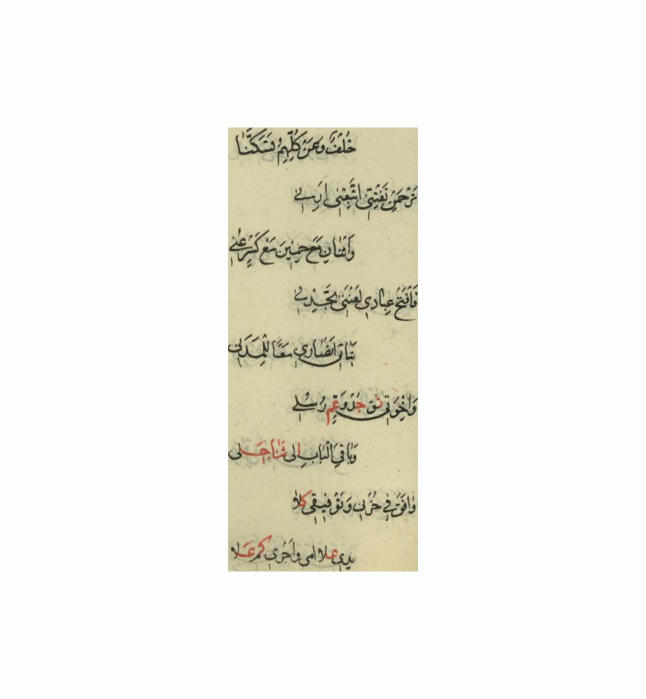 خُلْفٌ وَعَنْ كُلِّهِمْ تَسَكَّنَا
تَرْحَمْنِ تَفْتِنِّي اتَّبِعْنِي أَرِنِي
وَاثْنَانِ مَعْ خمسين مَعْ كَسْرٍ عُنِي
فَافْتَحْ عِبَادِي لَعْنَتِي تَجِدْنِي
بَنَاتِ أَنْصَارِي مَعًا لِلْمَدَنِي
وَإِخْوَتِي ثق جُدْ وَعَمَّ رُسْلِي
وَبَاقِي الْبَابِ إِلَى ثَنَا حَلِي
وَافَقَ فِي حُزْنِي وَتَوْفِيقِي كلا
يدي علا أمي وَأَجْرِي كم علا